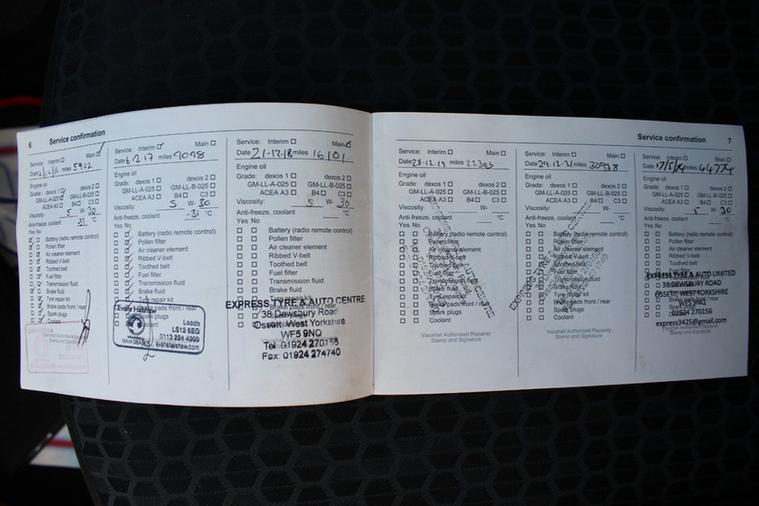 6
Service confirmation
Service: Interim Main
miles 5902
Engine oil
Grade: dexos 1 dexos 2
GM-LL-A-025 GM-LL-B-025
ACEA A3 B4 C3
Viscosity: 5 W- 30
Anti-freeze, coolant °C
Yes No
Battery (radio remote control)
Pollen filter
Air cleaner element
Ribbed V-belt
Toothed belt
Fuel filter
Transmission fluid
Brake fluid
Tyre repair kit
Brake pads front / rear
Spark plugs
Coolant
Vauxhall Authorised Repairer
Stamp and Signature
Service: Interim Main
Date 6.12.17 miles 9098
Engine oil
Grade: dexos 1 dexos 2
GM-LL-A-025 GM-LL-B-025
ACEA A3 B4 C3
Viscosity: 5 W- 30
Anti-freeze, coolant -31 °C
Yes No
Battery (radio remote control)
Pollen filter
Air cleaner element
Ribbed V-belt
Toothed belt
Fuel filter
Transmission fluid
Brake fluid
Tyre repair kit
pads front / rear
plugs
Evans Halshaw
Leeds
LS12 6EG
0113 234 4999
evanshalshaw.com
Service: Interim Main
Date 21-12-18 miles 16101
Engine oil
Grade: dexos 1 dexos 2
GM-LL-A-025 GM-LL-B-025
ACEA A3 B4 C3
Viscosity: 5 W- 30
Anti-freeze, coolant °C
Yes No
Battery (radio remote control)
Pollen filter
Air cleaner element
Ribbed V-belt
Toothed belt
Fuel filter
Transmission fluid
Brake fluid
EXPRESS TYRE & AUTO CENTRE
38 Dewsbury Road
Ossett, West Yorkshire
WF5 9NQ
Tel: 01924 270156
Fax: 01924 274740
Service confirmation 7
Service: Interim Main
Date 23-12-19 miles 22365
Engine oil
Grade: dexos 1 dexos 2
GM-LL-A-025 GM-LL-B-025
ACEA A3 B4 C3
Viscosity: W-
Anti-freeze, coolant °C
Yes No
Battery (radio remote control)
Pollen filter
Air cleaner element
Ribbed V-belt
Toothed belt
Fuel filter
Transmission fluid
Brake fluid
Tyre repair kit
Brake pads front / rear
Spark plugs
Coolant
Vauxhall Authorised Repairer
Stamp and Signature
Service: Interim Main
Date 29-12-21 miles 30938
Engine oil
Grade: dexos 1 dexos 2
GM-LL-A-025 GM-LL-B-025
ACEA A3 B4 C3
Viscosity: W-
Anti-freeze, coolant °C
Yes No
Battery (radio remote control)
Pollen filter
Air cleaner element
Ribbed V-belt
Toothed belt
Fuel filter
Transmission fluid
Brake fluid
Tyre repair kit
Brake pads front / rear
Spark plugs
Coolant
Vauxhall Authorised Repairer
Stamp and Signature
Service: Interim Main
miles 44774
Engine oil
Grade: dexos 1 dexos 2
GM-LL-A-025 GM-LL-B-025
ACEA A3 B4 C3
Viscosity: 5 W- 30
Anti-freeze, coolant °C
Yes No
Battery (radio remote control)
Pollen filter
Air cleaner element
Ribbed V-belt
Toothed belt
EXPRESS TYRE & AUTO LIMITED
38 DEWSBURY ROAD
OSSETT, WEST YORKSHIRE
WF5 9NQ
01924 270156
express3425@gmail.com
Vauxhall Authorised Repairer
Stamp and Signature